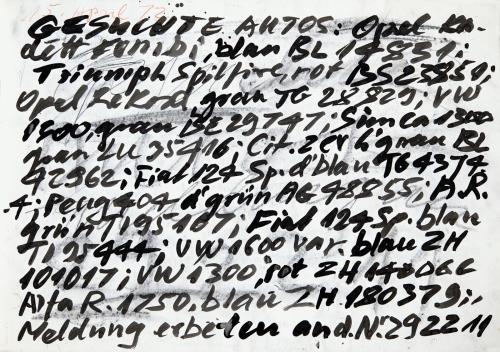 15. April 72
GESUCHTE AUTOS: Opel Ka-
dett combi, blau BL 14831;
Triumph Spitfire, rot BS 23851;
Opel Rekord, grau TG 28829; VW
1500, grau BE 29747; Simca 1300
grau LU 35416; Cit. 2CV h'grau BL
42962; Fiat 124 Sp. d'blau TG 4374
4; Peug 404 d'grün AG 48855; A.R.
grün TI 95167; Fiat 124 Sp. blau
TI 95444; VW 1600 Var. blau ZH
101017; VW 1300, rot ZH
Alfa R. 1750, blau ZH 180379;
Meldung erbeten an d. Nr. 292211